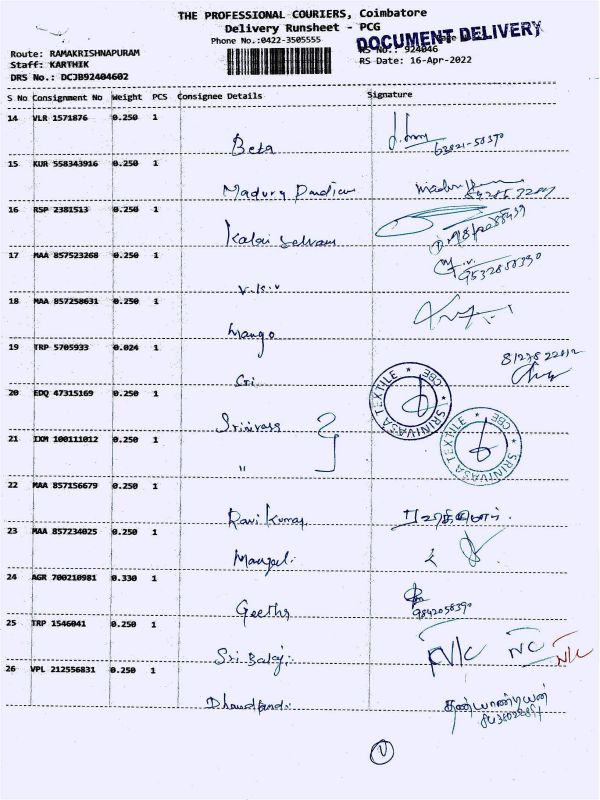 THE PROFESSIONAL COURIERS, Coimbatore
Delivery Runsheet - PCG
Phone No.:0422-3505555
DOCUMENT DELIVERY
Route: RAMAKRISHNAPURAM
Staff: KARTHIK
DRS No.: DCJB92404602
RS No.: 924046
RS Date: 16-Apr-2022
S No Consignment No Weight PCS Consignee Details Signature
14 VLR 1571876 0.250 1
Beta
15 KUR 558343916 0.250 1
16 RSP 2381513 0.250 1
Kalai Selvam
17 MAA 857523268 0.250 1
9532858390
V.K.V
18 MAA 857258631 0.250 1
Mango
19 TRP 5705933 0.024 1
Sri
20 EDQ 47315169 0.250 1
SRINIVASA TEXTILE CBE
Srinivasa
21 IXM 100111012 0.250 1
SRINIVASA TEXTILE CBE
"
22 MAA 857156679 0.250 1
Ravi Kumar
23 MAA 857234025 0.250 1
24 AGR 700210981 0.330 1
Geetha
9842058390
25 TRP 1546041 0.250 1
Sri Balaji
NC N/C
26 VPL 212556831 0.250 1